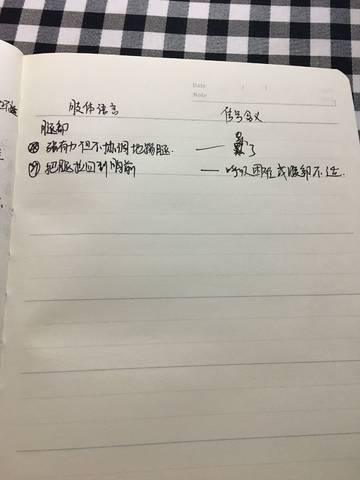 Date / /
Note
肢体语言 信号含义
腿部
㉖ 强有力但不协调地踢腿. —— 累了
㉗ 把腿收回到胸前 —— 呼吸困难或腹部不适.